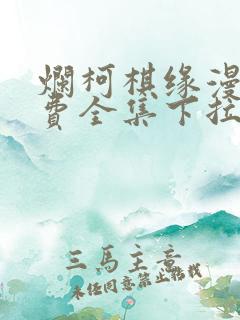 爛柯棋缘漫
费全集下拉
三馬主意
未经同意禁止转载